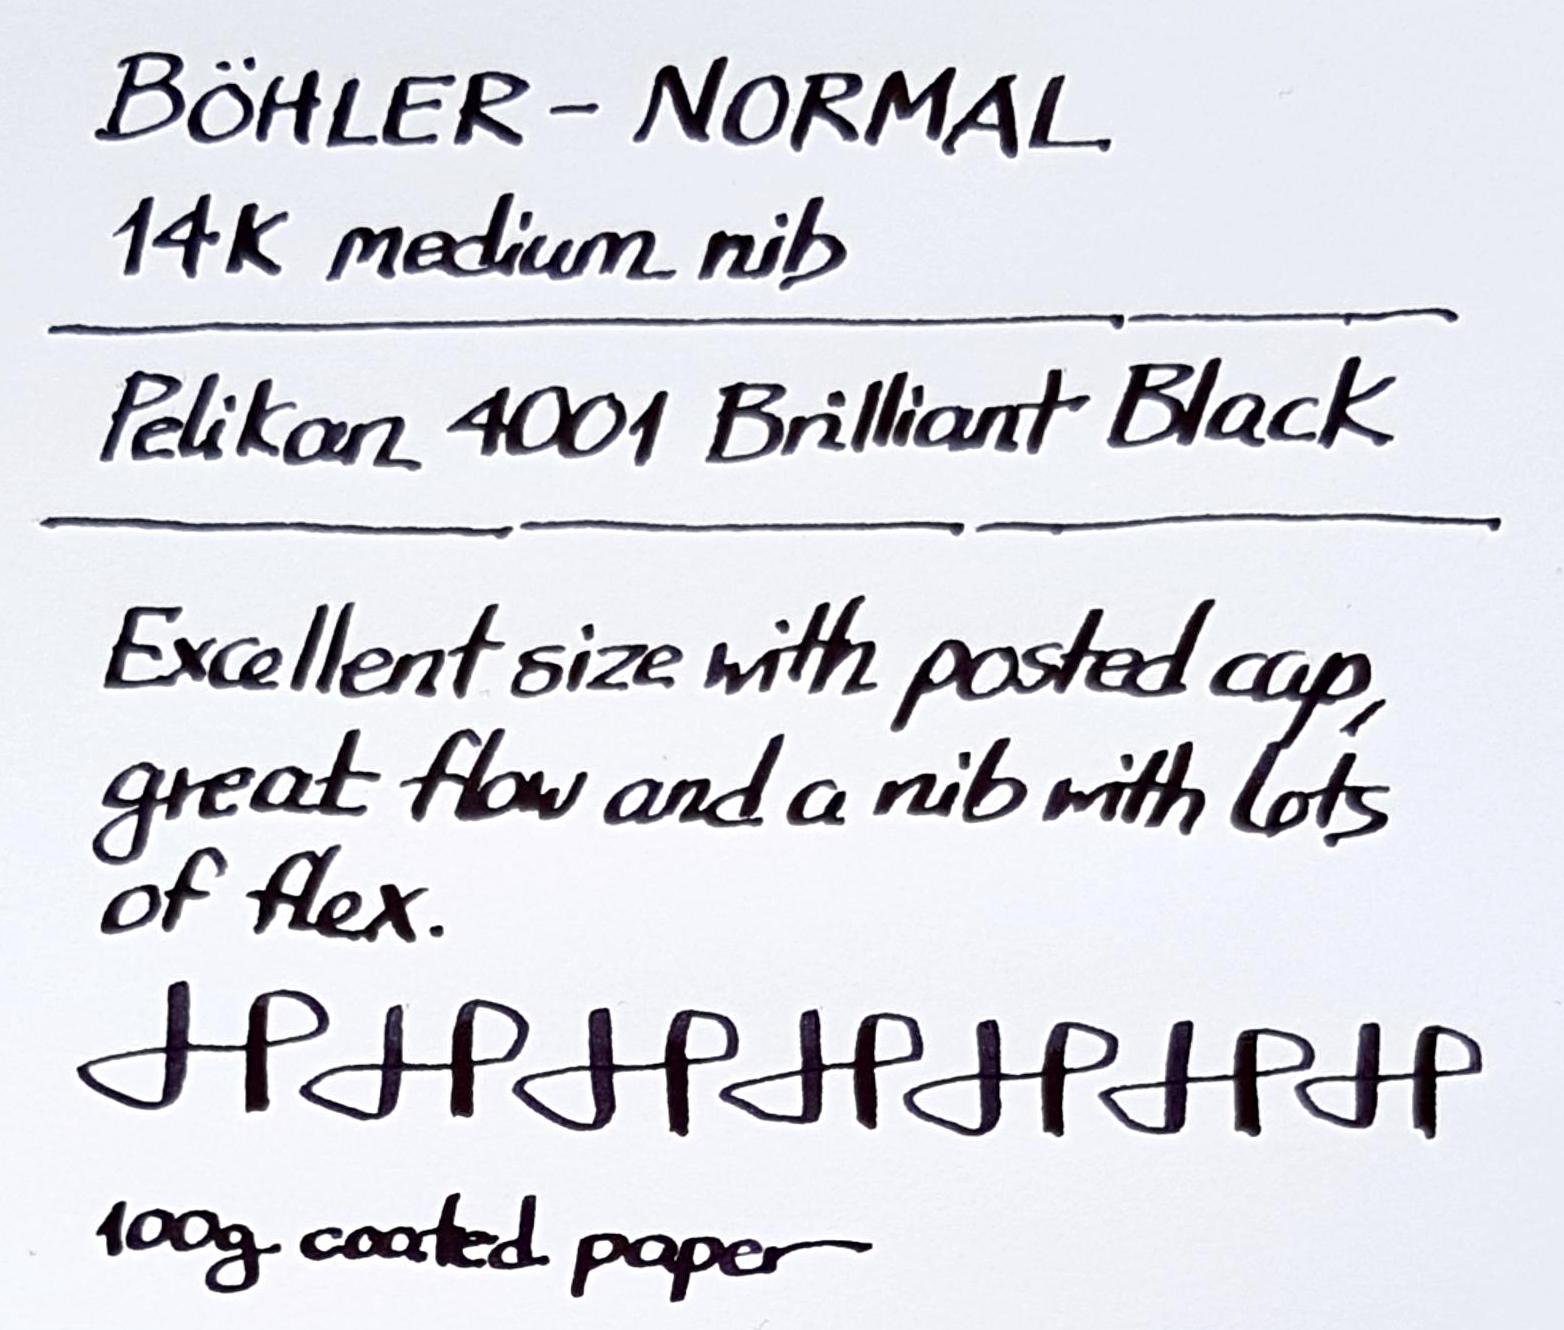 BÖHLER - NORMAL
14K medium nib
Pelikan 4001 Brilliant Black
Excellent size with posted cap,
great flow and a nib with lots
of flex.
100g coated paper